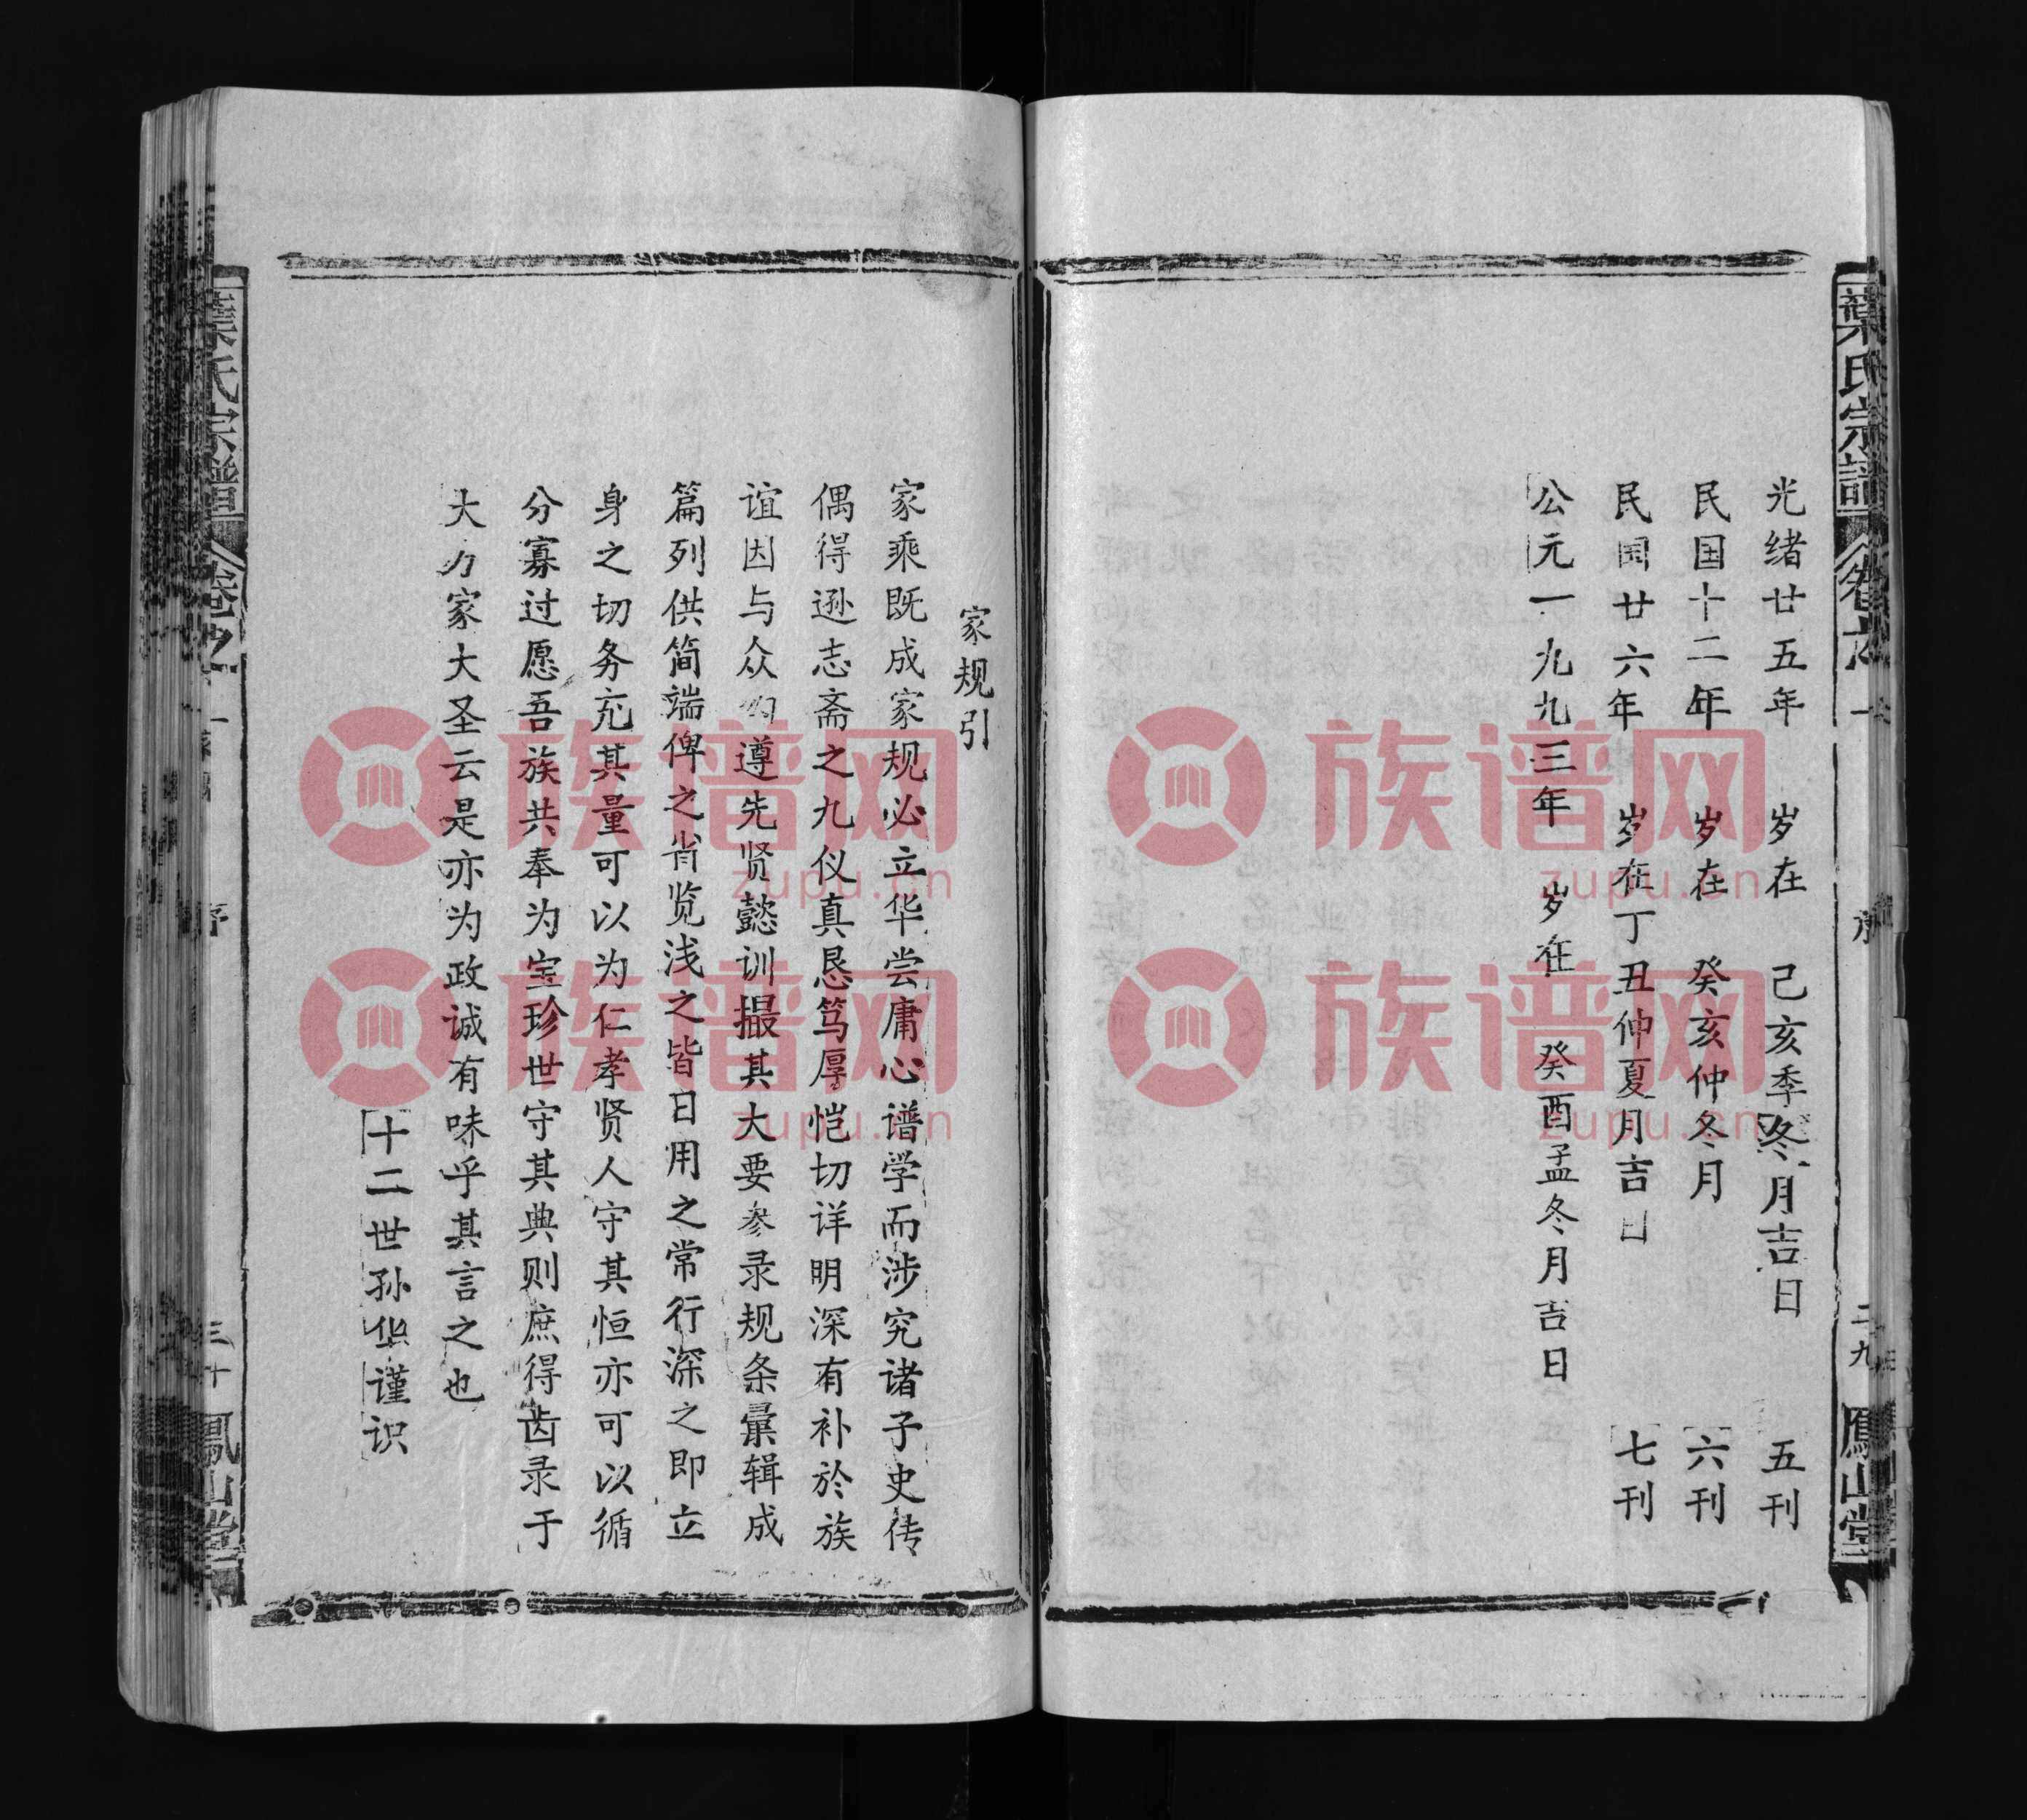 葉氏宗譜
序
二九
鳳山堂
光绪廿五年 岁在 己亥季冬月吉日 五刊
民国十二年 岁在 癸亥仲冬月 六刊
民国廿六年 岁在丁丑仲夏月吉日 七刊
公元一九九三年 岁在 癸酉孟冬月吉日
家规引
家乘既成家规必立华尝庸心谱学而涉究诸子史传
偶得逊志斋之九仪真恳笃厚恺切详明深有补於族
谊因与众 遵先贤懿训撮其大要参录规条彙辑成
篇列供简端俾之省览浅之皆日用之常行深之即立
身之切务充其量可以为仁孝贤人守其恒亦可以循
分寡过愿吾族共奉为宝珍世守其典则庶得齿录于
大力家大圣云是亦为政诚有味乎其言之也
十二世孙华谨识
葉氏宗譜
卷之
序
三十
鳳山堂
族谱网
zupu.cn
族谱网
zupu.cn
族谱网
zupu.cn
族谱网
zupu.cn